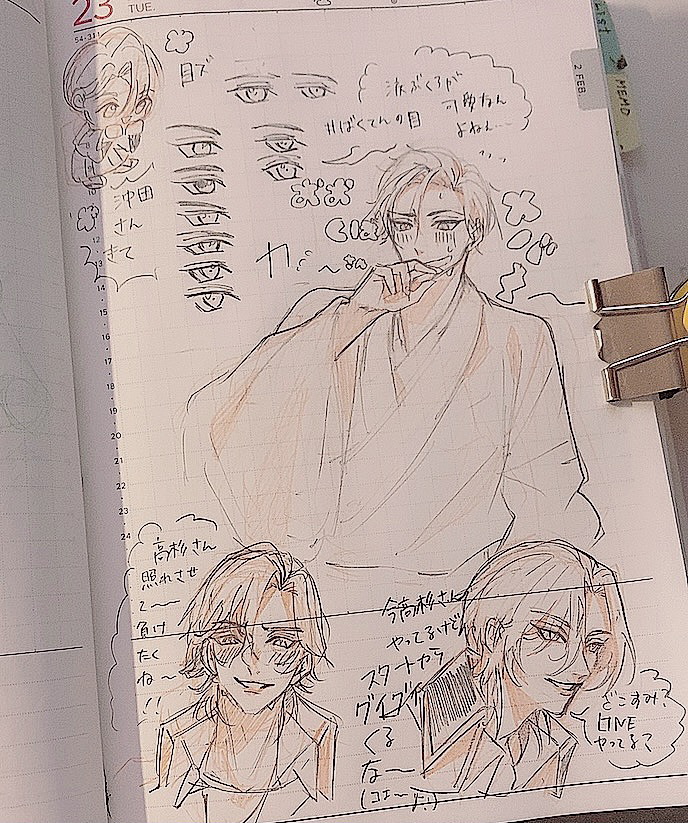 23 TUE.
54-311
2 FEB.
List
MEMO
目ズ
涙ぶくろが
可愛なん
よねん…
ばくてんの目
沖田
さん
きて
高杉さん
照れさせ
て〜
負け
たく
ね〜
!!
今高杉さん
やってるけど
スタートから
グイグイ
くる
な〜
どこすみ?
LINE
やってる?
10
12
13
14
15
16
17
18
19
20
21
22
23
24